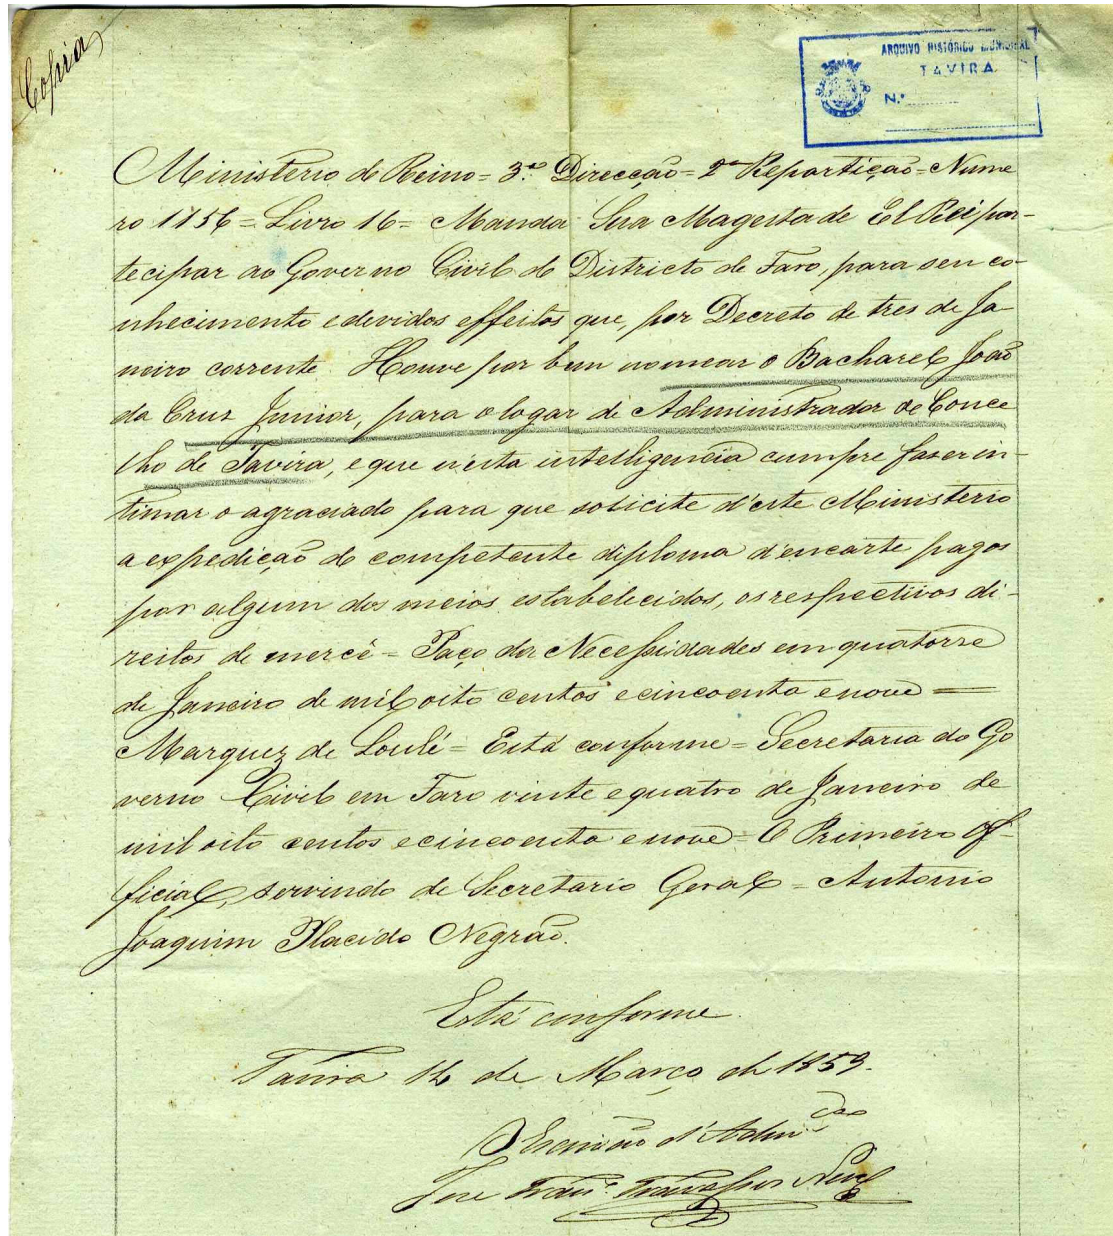 Copia
ARQUIVO HISTÓRICO MUNICIPAL
TAVIRA
N.º
Ministerio do Reino = 3.ª Direcção = 2ª Repartição = Nume
ro 1156 = Livro 16 = Manda Sua Magestade El Rei par-
tecipar ao Governo Civil do Districto de Faro, para seu co-
nhecimento e devidos effeitos que, por Decreto de tres de Ja-
neiro corrente. Houve por bem nomear o Bacharel João
da Cruz Junior, para o logar de Administrador de Conce
lho de Tavira, e que n'esta intelligencia cumpre faser in-
timar o agraciado para que solicite d'este Ministerio
a expedição do competente diploma d'encarte pagos
por algum dos meios estabelecidos, os respectivos di-
reitos de mercê = Paço das Necessidades em quatorse
de Janeiro de mil oito centos e cincoenta e nove =
Marquez de Loulé = Está conforme = Secretaria do Go
verno Civil em Faro vinte e quatro de Janeiro de
mil oito centos e cincoenta e nove = O Primeiro Of-
ficial, servindo de Secretario Geral = Antonio
Joaquim Placido Negrão.
Está conforme
Tavira de Março de 1859.
O Escrivão d'Adm.ção
José Fran.co Travassos Neves